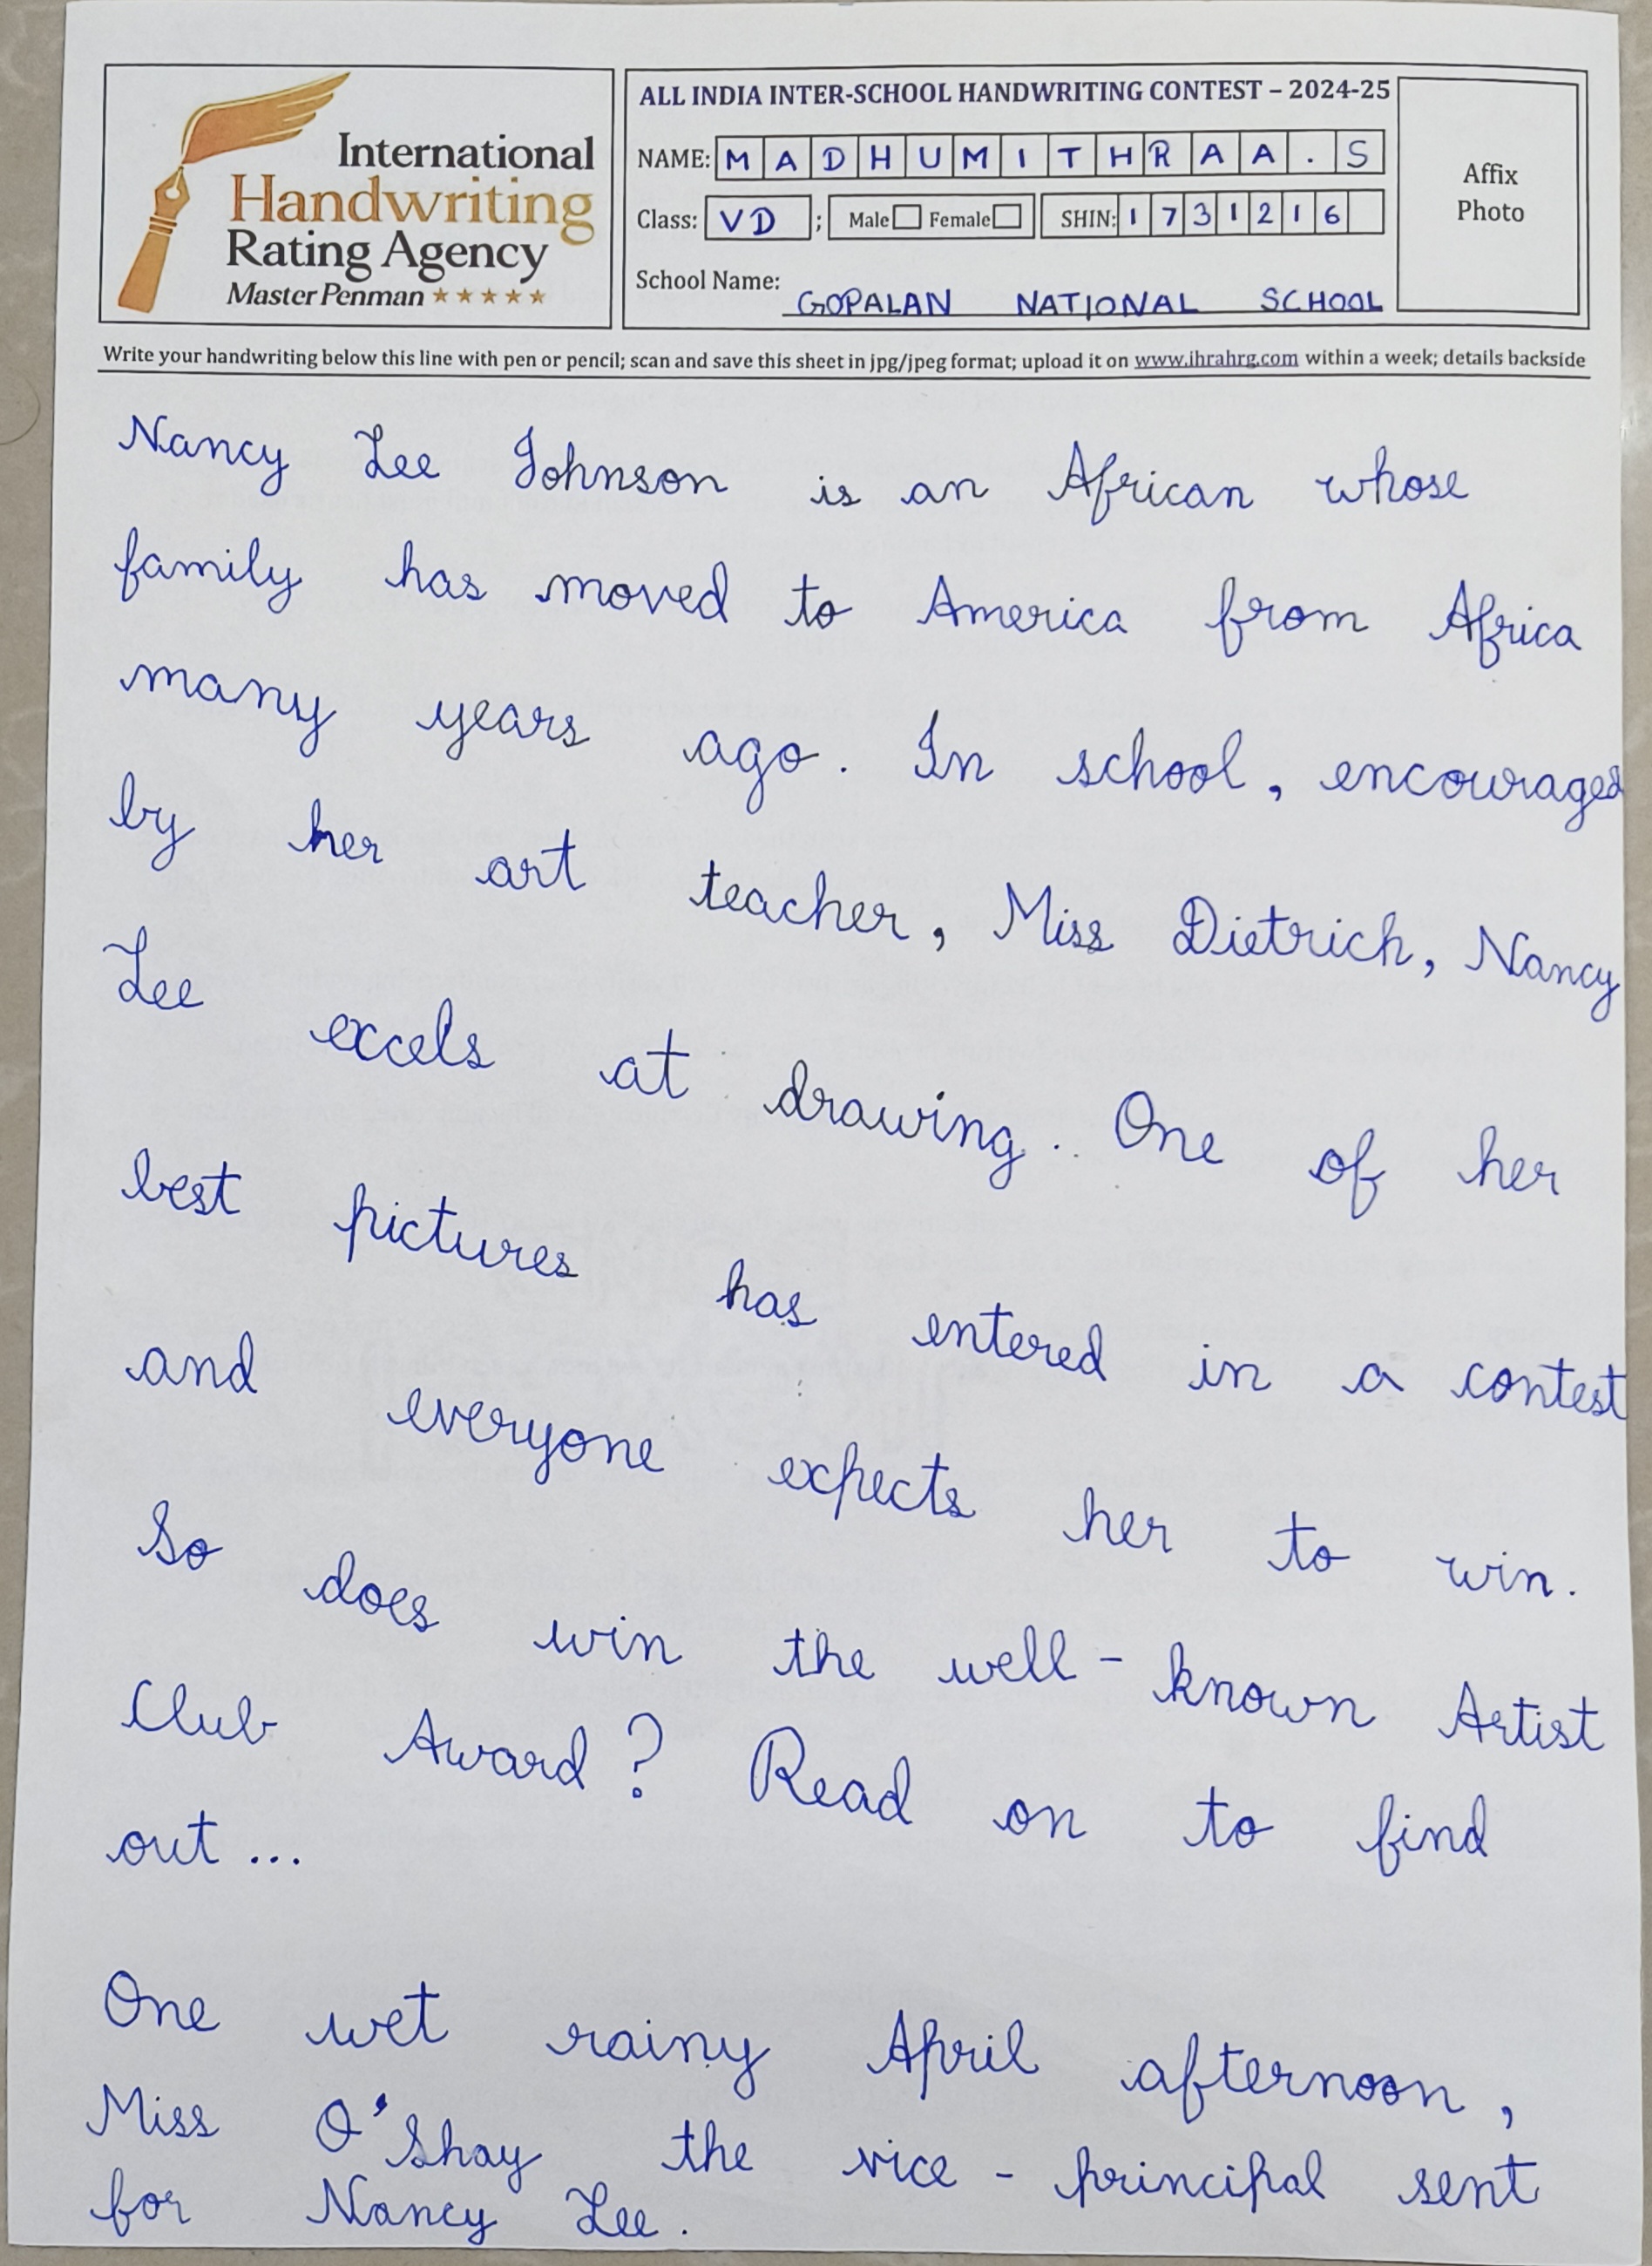 International
Handwriting
Rating Agency
Master Penman
ALL INDIA INTER-SCHOOL HANDWRITING CONTEST – 2024-25
NAME: MADHUMITHRAA.S
Class: VD ; Male Female SHIN: 1731216
School Name: GOPALAN NATIONAL SCHOOL
Affix
Photo
Write your handwriting below this line with pen or pencil; scan and save this sheet in jpg/jpeg format; upload it on www.ihrahrg.com within a week; details backside
Nancy Lee Johnson is an African whose
family has moved to America from Africa
many years ago. In school, encouraged
by her art teacher, Miss Dietrich, Nancy
Lee excels at drawing. One of her
best pictures has entered in a contest
and everyone expects her to win.
So does win the well - known Artist
Club Award? Read on to find
out...
One wet rainy April afternoon,
Miss O'Shay the vice - principal sent
for Nancy Lee.